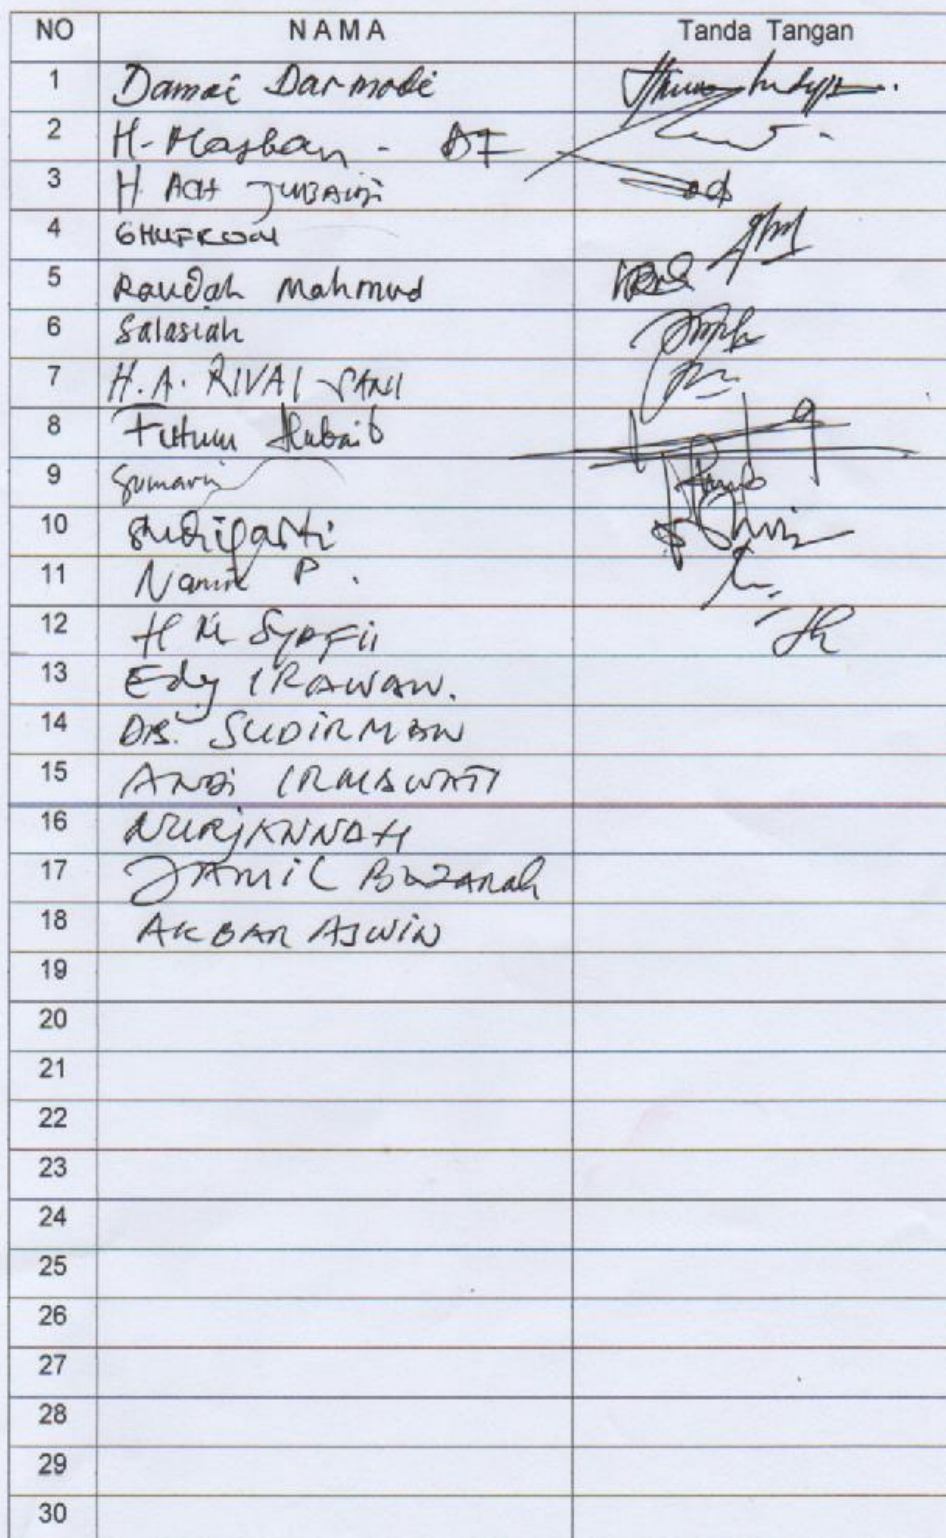 NO NAMA Tanda Tangan
1 Damai Darmadi
2 H. Hasban - AF
3 H Ach Jubaidi
4 GHUFRON
5 Raudah Mahmud
6 Salasiah
7 H.A. RIVAI SANI
8 Futum Hubaib
9 Sumarni
10
11 Nanik P.
12 H M Syafii
13 Edy IRAWAN.
14 DRS. SUDIRMAN
15 ANDI IRMAWATI
16 NURJANNAH
17 JAMIL
18 AKBAR ASWIN
19
20
21
22
23
24
25
26
27
28
29
30